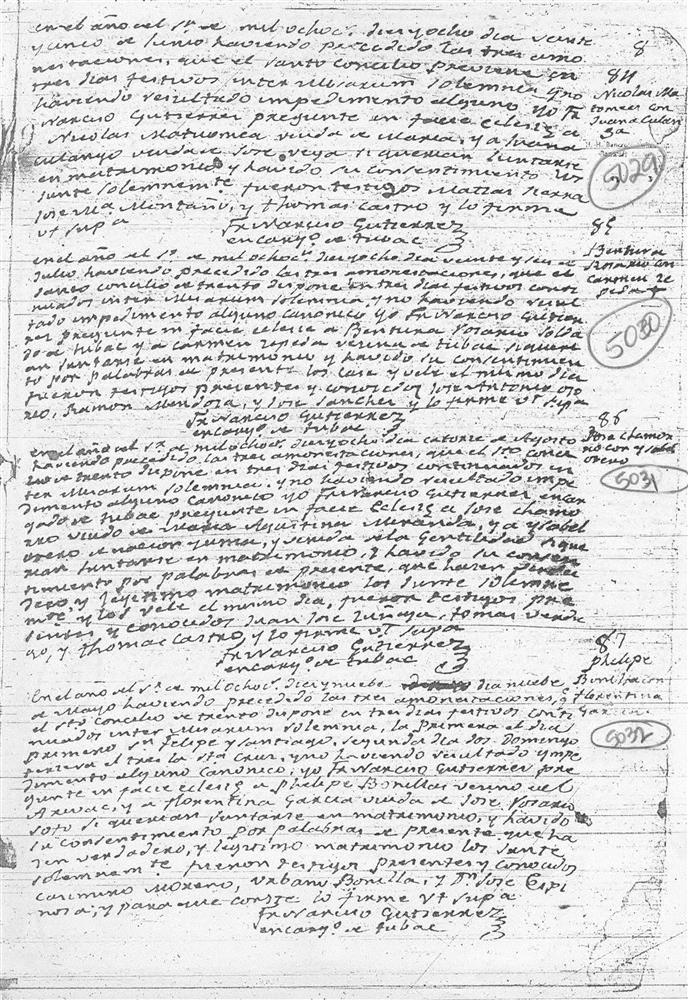 en el año del Sr. de mil ochoc.s dieziocho dia veinte
y cinco de Junio haviendo precedido las tres amo
nestaciones, que el santo concilio previene en
tres dias festivos inter Missarum solemnia y no
haviendo resultado impedimento alguno yo Fr
Narciso Gutierrez pregunte in facie eclesie a
Nicolas viudo de Maria, y a Juana
viuda de Jose Vega si querian juntarse
en matrimonio y havido su consentimiento los
junte solemnem.te fueron testigos Matias Sierra
Jose Ma Montaño, y Thomas Castro y lo firme
vt supa
Fr Narciso Gutierrez
encargo. de tubac
8
84
Nicolas Ma
con
Juana
5029
en el año del Sr. de mil ochoc.s dieziocho dia veinte y seis de
Julio haviendo precedido las tres amonestaciones, que el
santo concilio de trento dispone en tres dias festivos conti
nuados inter Missarum solemnia, y no haviendo resul
tado impedimento alguno canonico yo Fr Narciso Gutier
rez pregunte in facie eclesie a Bentura Rosario solda
do de tubac y a Carmen Zepeda vecina de tubac si queri
an juntarse en matrimonio y havido su consentimien
to por palabras de presente los case y vele el mismo dia
fueron testigos presentes y conocidos Jose Antonio oso
rio, Ramon Mendoza, y Jose Sanchez y lo firme vt supa
Fr Narciso Gutierrez
encargo. de tubac
85
Bentura
Rosario con
Carmen Ze
peda
5030
en el año del Sr. de mil ochoc.s dieziocho dia catorze de Agosto
haviendo precedido las tres amonestaciones, que el sto conci
lio de trento dispone en tres dias festivos continuados in
ter Missarum solemnia, y no haviendo resultado impe
dimento alguno canonico yo Fr Narciso Gutierrez encar
gado de tubac pregunte in facie eclesie a Jose Chamo
rro viudo de Maria Agustina Miranda, y a Ysabel
otero de nacion yuma, y venida de la Gentilidad si que
rian juntarse en matrimonio, y havido su consen
timiento por palabras de presente, que hazen verda
dero, y legitimo matrimonio los junte solemne
mte y los vele el mismo dia, fueron testigos pre
sentes, y conocidos Juan Jose Zuñiga, tomas
y Thomas Castro, y lo firme vt supa
Fr Narciso Gutierrez
encargo. de tubac
86
Jose Chamor
ro con Ysabel
otero
5031
En el año del Sr. de mil ochoc.s diez y nuebe dia nuebe
de Mayo haviendo precedido las tres amonestaciones, q
el sto concilio de trento dispone en tres dias festivos conti
nuados inter Missarum solemnia, la primera el dia
primero Sn felipe y santiago, segunda dia dos domingo
tercera el tres la sta Cruz, y no haviendo resultado ympe
dimento alguno canonico, yo Fr Narciso Gutierrez pre
gunte in facie eclesie a phelipe Bonillas vecino del
Arivac, y a florentina Garcia viuda de Jose Rosario
soto si querian juntarse en matrimonio, y havido
su consentimiento por palabras de presente que ha
zen verdadero, y legitimo matrimonio los junte
solemnem.te fueron testigos presentes y conocidos
Casimiro Moreno, urbano Bonilla, y Dn Jose Espi
nosa, y para que conste lo firme vt supa
Fr Narciso Gutierrez
encargo. de tubac
87
phelipe
Bonillas con
florentina
Garcia
5032